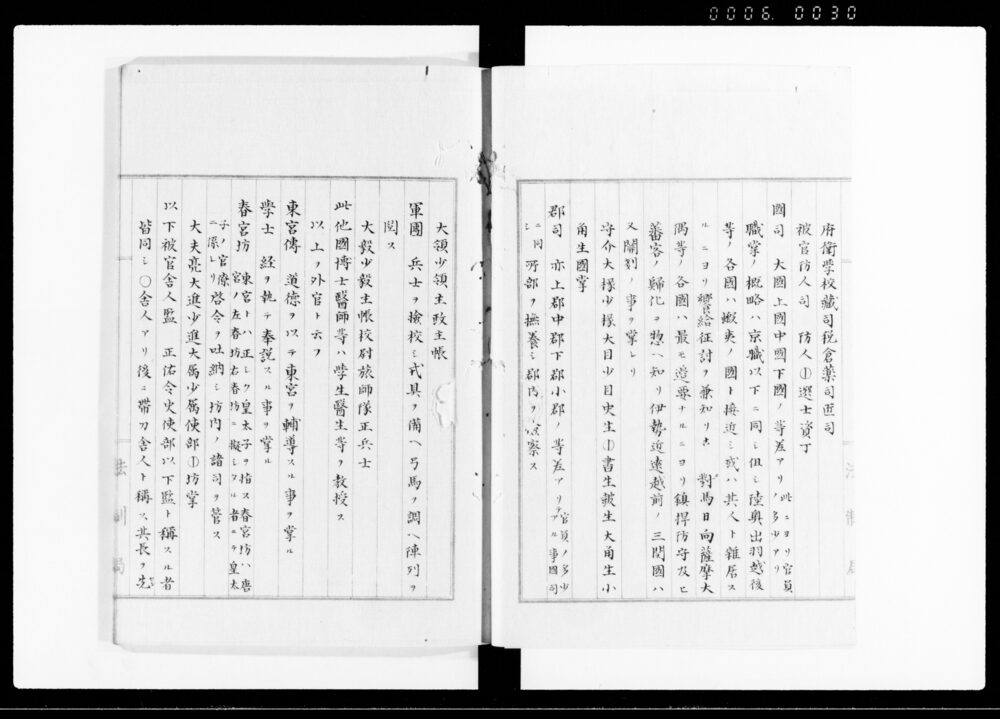 0006. 0030
府衛学校藏司税倉藥司匠司
被官防人司 防人①選士資丁
國司 大國上國中國下國ノ等差アリ此ニヨリ官員ノ多少アリ
職掌ノ概略ハ京職以下ニ同シ但シ陸奥出羽越後
等ノ各國ハ蝦夷ノ國ト接近シ或ハ其人ト雜居ス
ルニヨリ饗給征討ヲ兼知リ 對馬日向薩摩大
隅等ノ各國ハ最モ邊要ナルニヨリ鎮捍防守及ヒ
蕃客ノ歸化ヲ惣ヘ知リ伊勢近江越前ノ三関國ハ
又關剗ノ事ヲ掌レリ
守介大掾少掾大目少目史生①書生皷生大角生小
角生國掌
郡司 亦上郡中郡下郡小郡ノ等差アリ官員ノ多少アル事國司ニ同シ 所部ヲ撫養シ郡内ヲ察ス
大領少領主政主帳
軍團 兵士ヲ撿校シ戎具ヲ備ヘ弓馬ヲ調ヘ陣列ヲ
閲ス
大毅少毅主帳校尉旅師隊正兵士
此他國博士醫師等ハ學生醫生等ヲ教授ス
以上ヲ外官ト云フ
東宮傳 道德ヲ以テ東宮ヲ輔導スル事ヲ掌ル
學士 経ヲ執テ奉説スル事ヲ掌ル
春宮坊 東宮トハ正シク皇太子ヲ指ス春宮坊ハ唐宮ノ左春坊右春坊ニ擬シタル者ニテ皇太
子ノ官僚ニ係レリ 啓令ヲ吐納シ坊内ノ諸司ヲ管ス
大夫亮大進少進大属少属使部①坊掌
以下被官舎人監 正佑令史使部以下監ト稱スル者
皆同シ〇舎人アリ後ニ帶刀舎人ト稱ス其長ヲ先
法制局